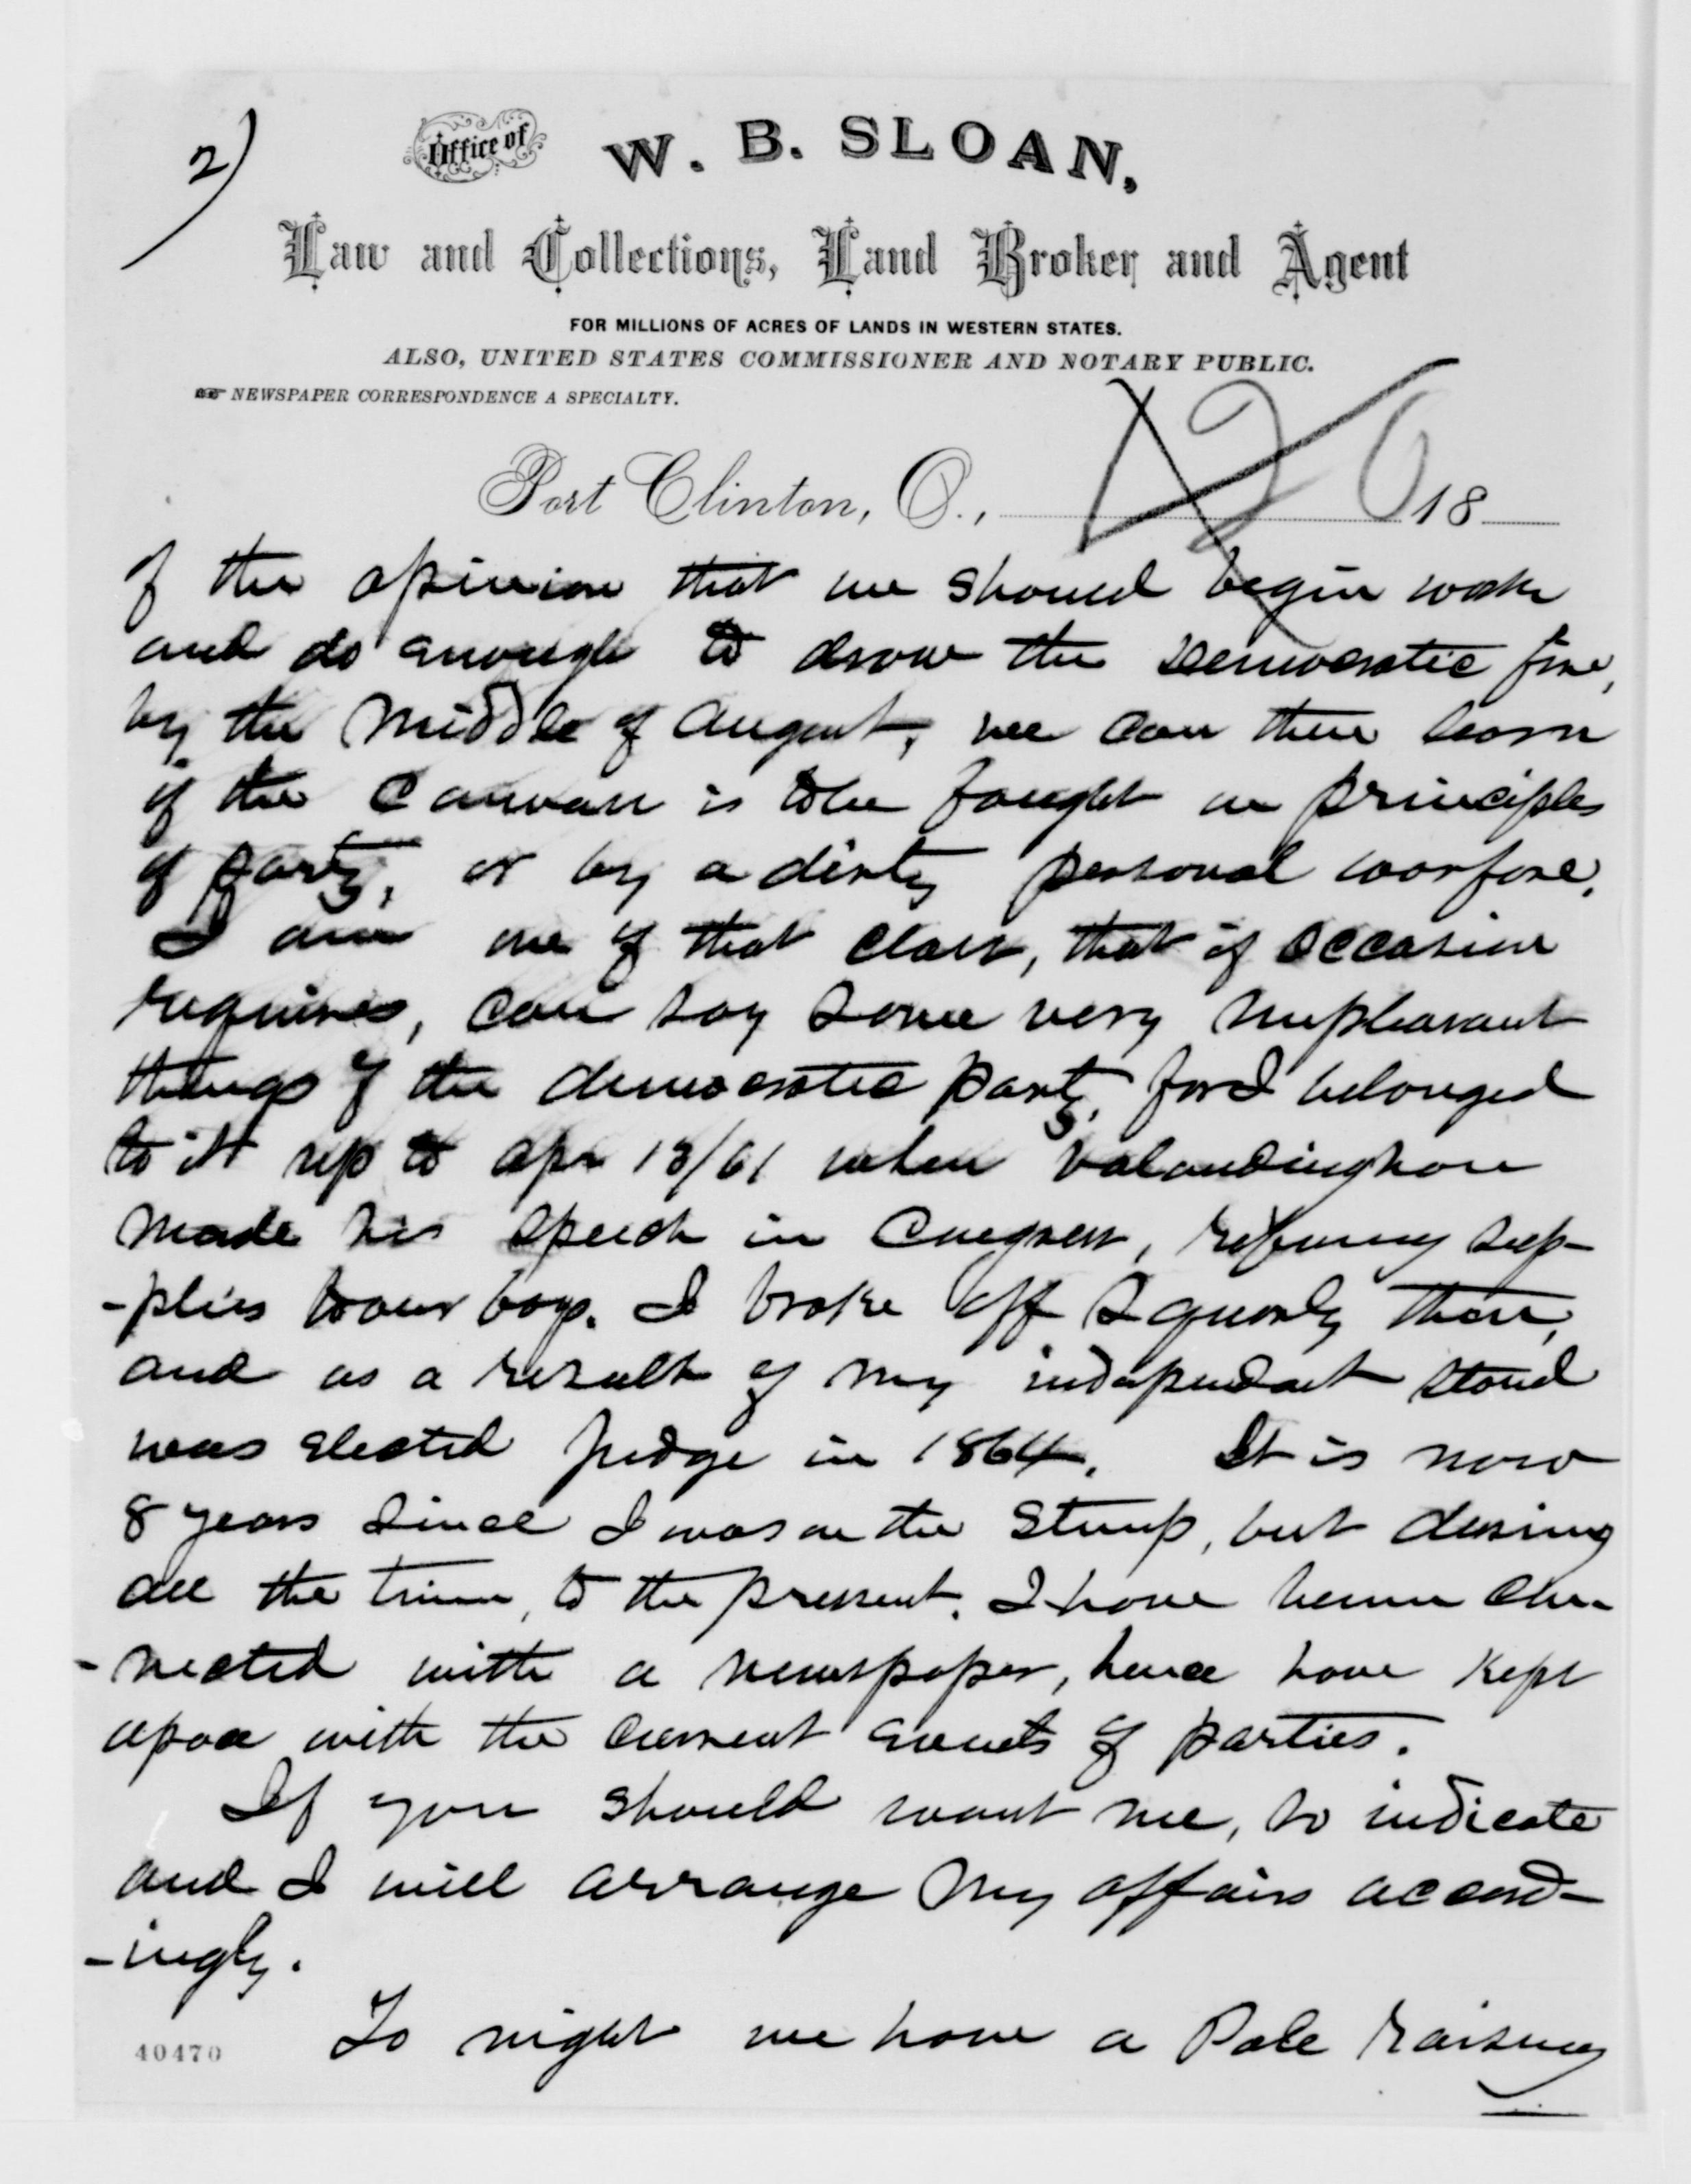 2)
Office of W. B. SLOAN,
Law and Collections, Land Broker and Agent
FOR MILLIONS OF ACRES OF LANDS IN WESTERN STATES.
ALSO, UNITED STATES COMMISSIONER AND NOTARY PUBLIC.
NEWSPAPER CORRESPONDENCE A SPECIALTY.
Port Clinton, O., 18
of the opinion that we should begin work
and do enough to draw the Democratic fire,
by the middle of August, we can then learn
if the Canvass is to be fought on principles
of party, or by a dirty personal warfare.
I am one of that class, that if occasion
requires, can say some very unpleasant
things of the democratic party, for I belonged
to it up to Apr 18/61 when Valandingham
made his speech in Congress, refusing sup-
-plies to our boys. I broke off squarely then,
and as a result of my independent stand
was elected Judge in 1864. It is now
8 years since I was on the Stump, but during
all the time, to the present. I have been con-
-nected with a newspaper, hence have kept
apace with the current events of parties.
If you should want me, so indicate
and I will arrange my affairs accord-
-ingly.
To night we have a Pole raising
40470